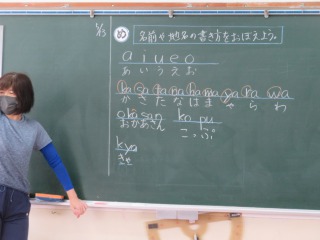 5/13
め 名前や地名の書き方をおぼえよう。
a i u e o
あ い う え お
ka sa ta na ha ma ya ra wa
か さ た な は ま や ら わ
okasan ko pu
おかあさん こっぷ
kya
きゃ